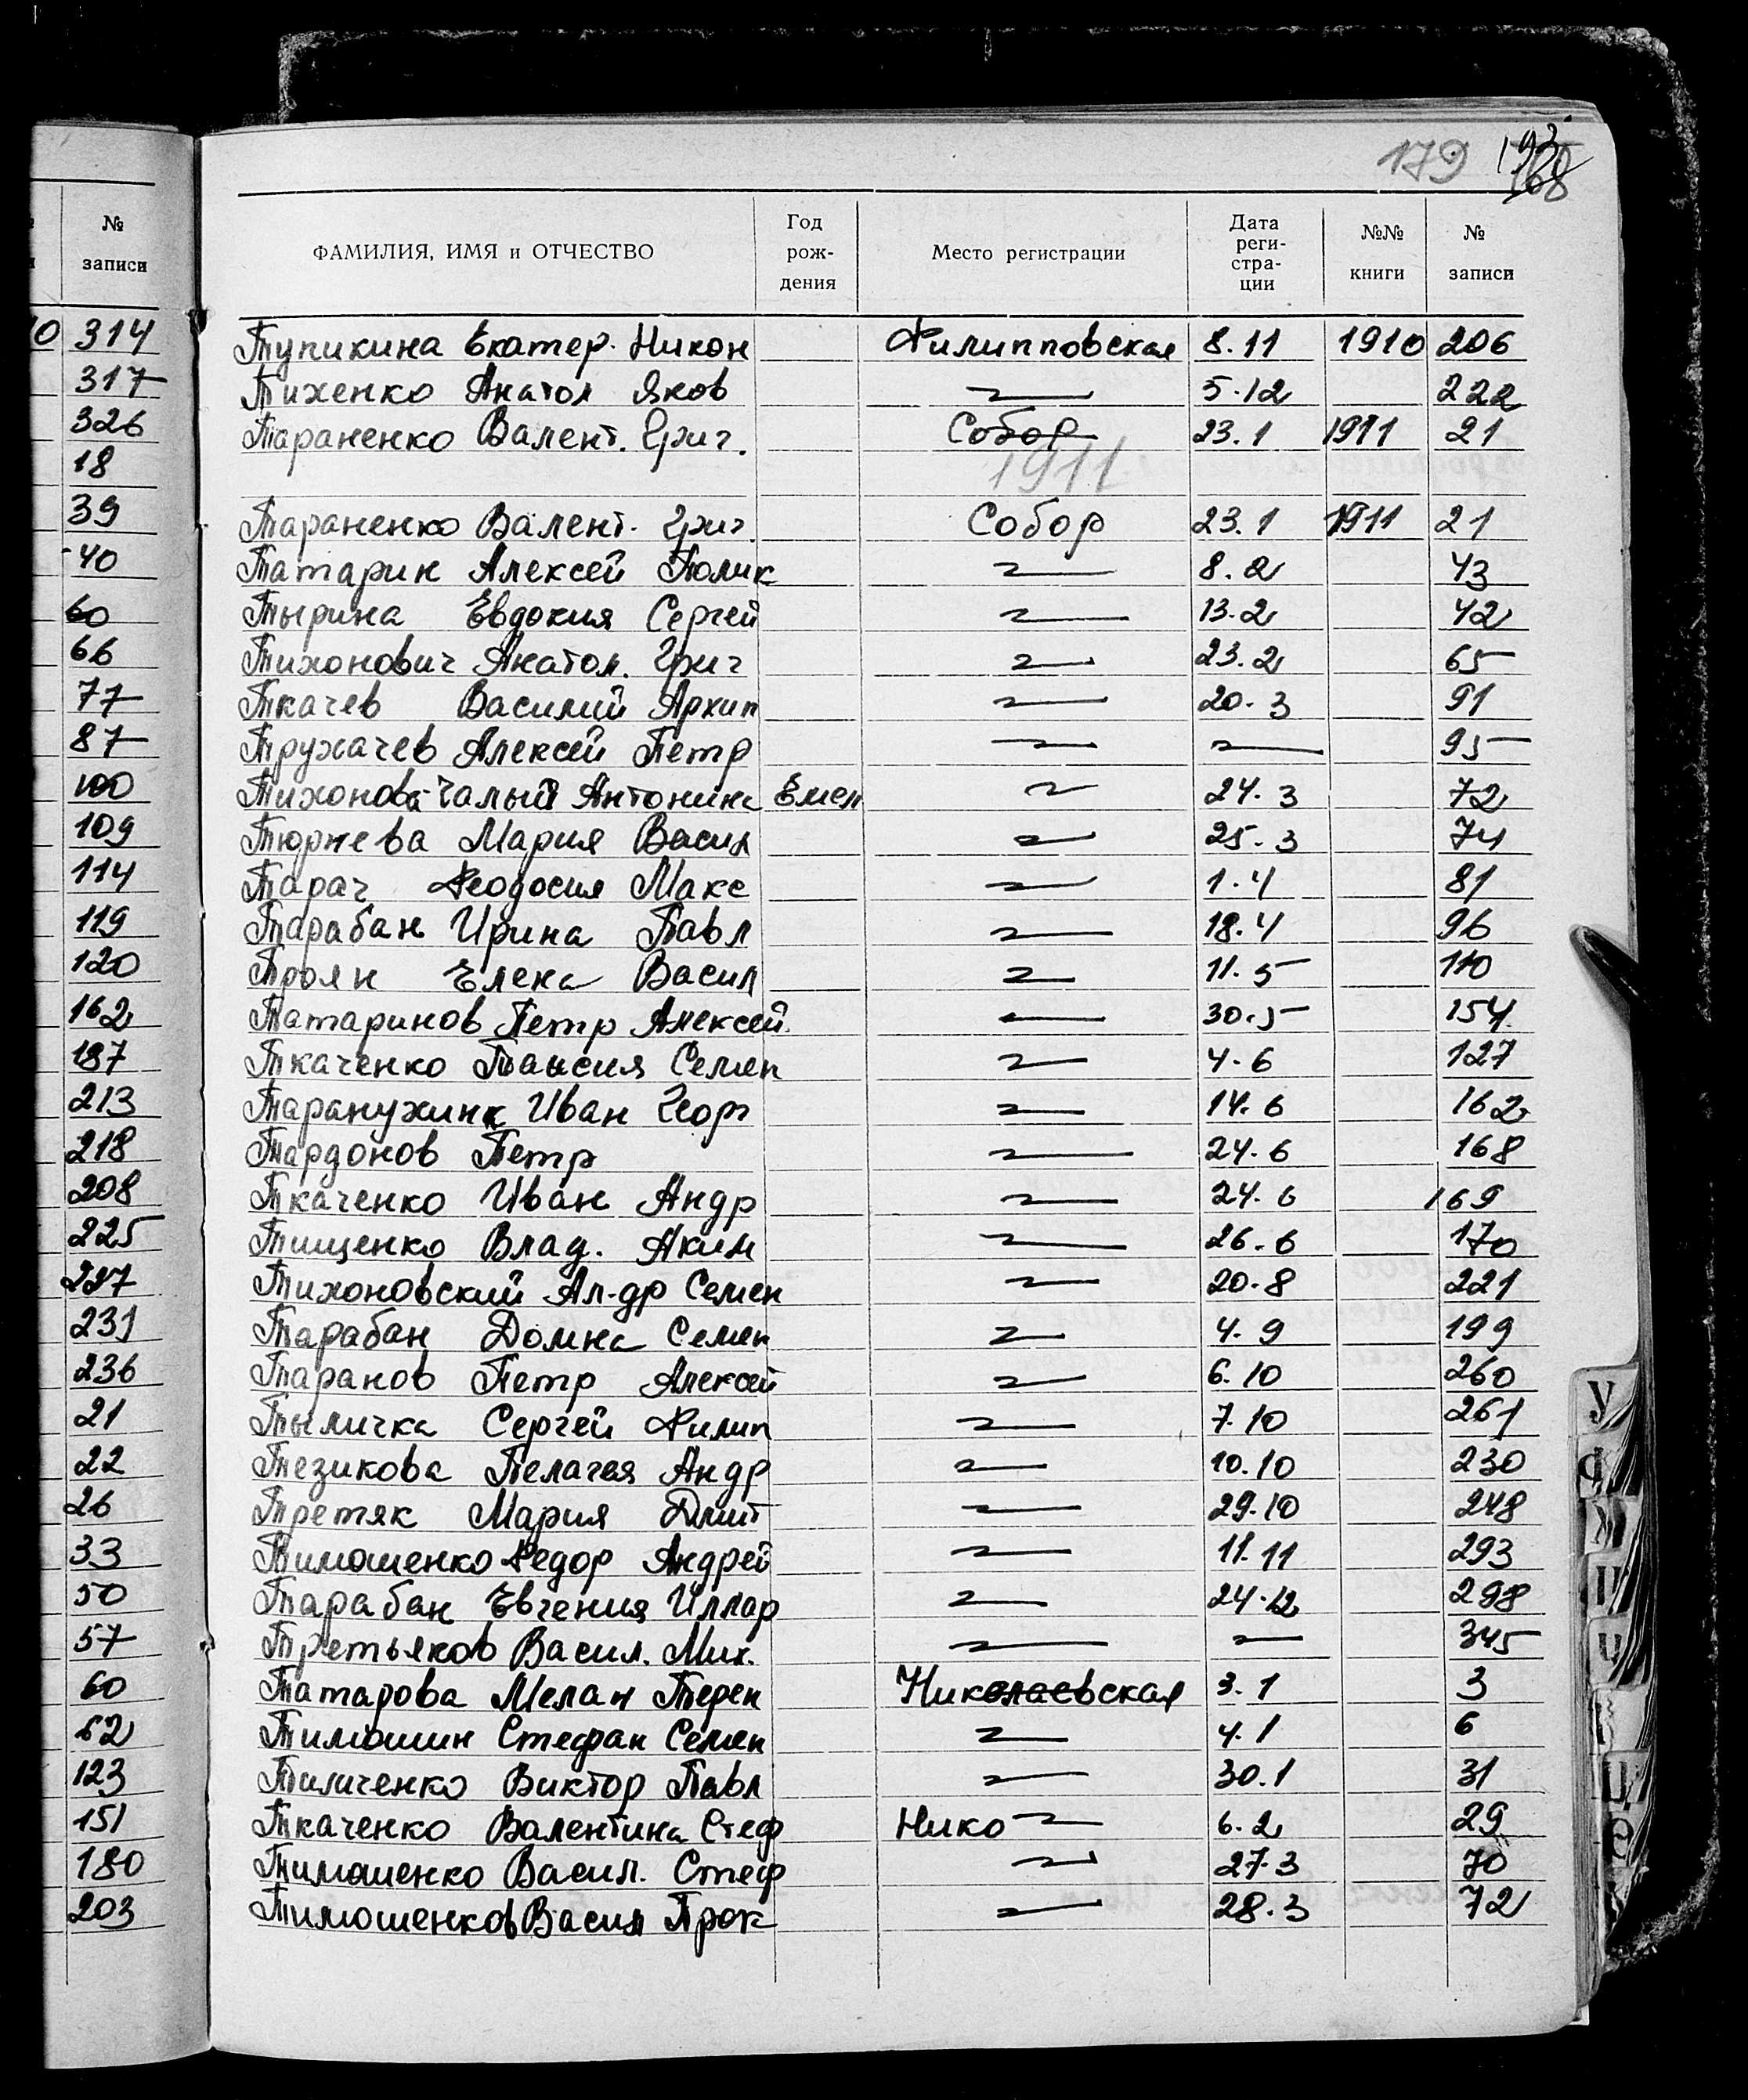 179 193
№ записи
ФАМИЛИЯ, ИМЯ и ОТЧЕСТВО Год рож- дения Место регистрации Дата реги- стра- ции №№ книги № записи
314 Тупикина Екатер. Никон Филипповская 8.11 1910 206
317 Тихенко Анатол Яков 〃 5.12 222
326 Тараненко Валент. Григ. Собор 23.1 1911 21
18 1911
39 Тараненко Валент. Григ. Собор 23.1 1911 21
40 Татарин Алексей Полик 〃 8.2 43
60 Тырина Евдокия Сергей 〃 13.2 42
66 Тихонович Анатол. Григ 〃 23.2 65
77 Ткачев Василий Архип 〃 20.3 91
87 Тружачев Алексей Петр 〃 〃 95
100 Тихонова-Чалый Антонина Емел 〃 24.3 72
109 Тюрнева Мария Васил 〃 25.3 74
114 Тарач Феодосия Макс 〃 1.4 81
119 Тарабан Ирина Павл 〃 18.4 96
120 Троян Елена Васил 〃 11.5 110
162 Татаринов Петр Алексей 〃 30.5 154
187 Ткаченко Таисия Семен 〃 4.6 127
213 Таранужинк Иван Георг 〃 14.6 162
218 Тардонов Петр 〃 24.6 168
208 Ткаченко Иван Андр 〃 24.6 169
225 Тищенко Влад. Аким 〃 26.6 170
227 Тихоновский Ал-др Семен 〃 20.8 221
231 Тарабан Домна Семен 〃 4.9 199
236 Таранов Петр Алексей 〃 6.10 260
21 Тыличка Сергей Филип 〃 7.10 261
22 Тезикова Пелагея Андр 〃 10.10 230
26 Третяк Мария Дмит 〃 29.10 248
33 Тимошенко Федор Андрей 〃 11.11 293
50 Тарабан Евгения Иллар 〃 24.12 298
57 Третьяков Васил. Мих. 〃 〃 345
60 Татарова Мелан Терен Николаевская 3.1 3
62 Тимошин Стефан Семен 〃 4.1 6
123 Тимченко Виктор Павл 〃 30.1 31
151 Ткаченко Валентина Стеф Нико 〃 6.2 29
180 Тимошенко Васил. Стеф 〃 27.3 70
203 Тимошенков Васил Прок 〃 28.3 72
У
Ф
Х
Ц